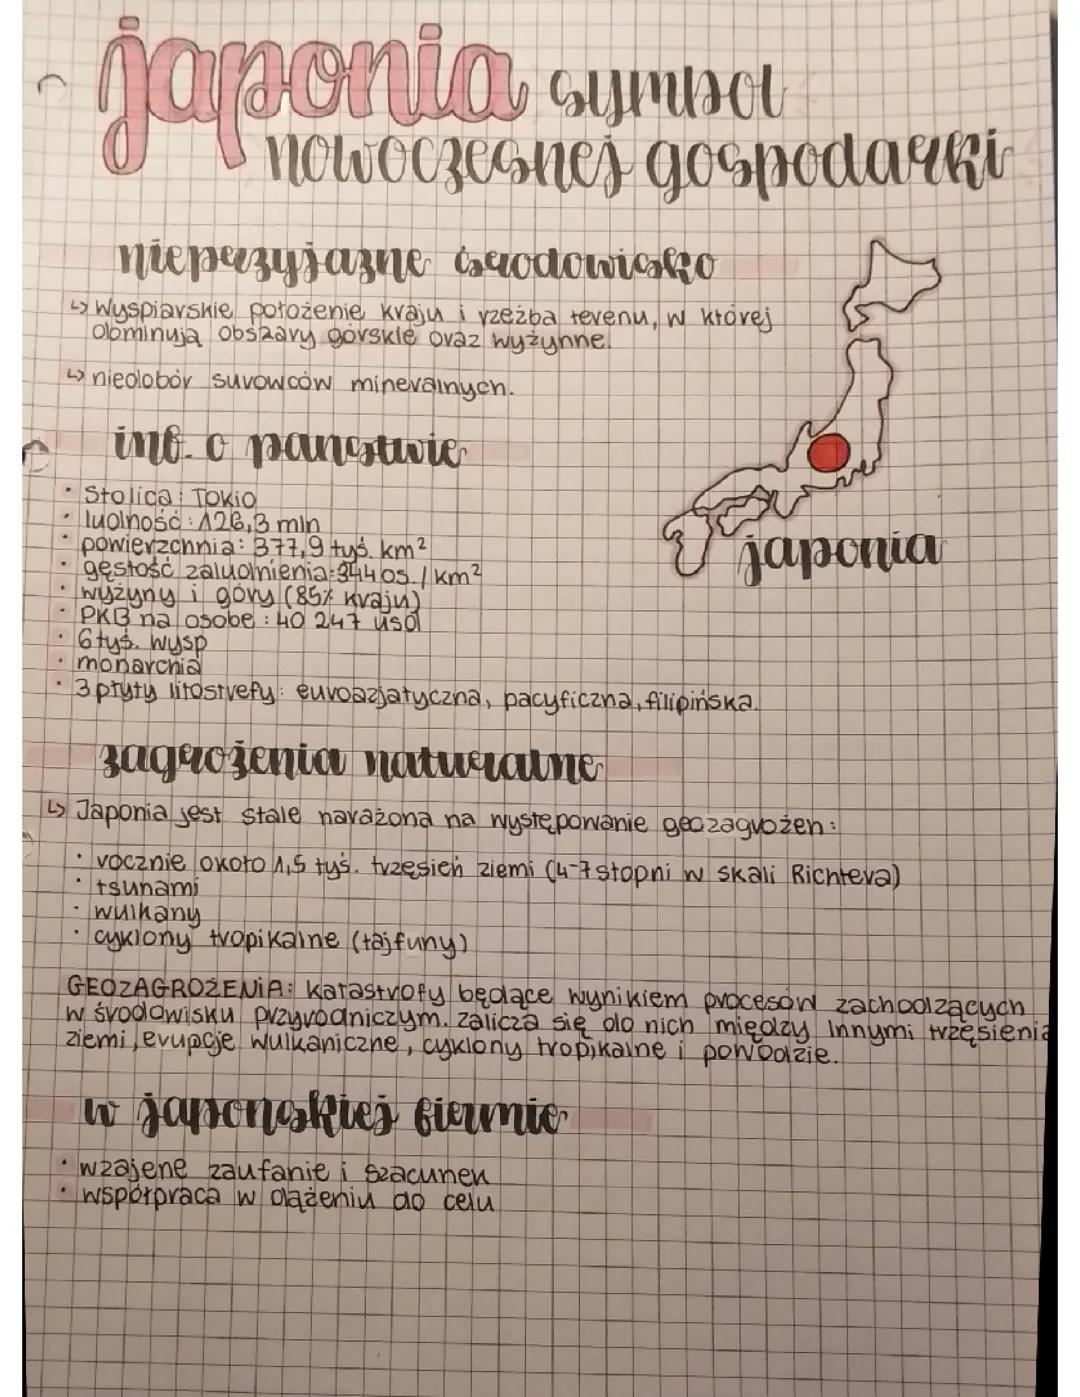 japonia symbol
nowoczesnej gospodarki
nieprzyjazne środowisko
↳ Wyspiarskie położenie kraju i rzeźba terenu, w której
dominują obszary górskie oraz wyżynne.
↳ niedobór surowców mineralnych.
inf. o państwie
• Stolica: TOKIO
• ludność: 126,3 mln
• powierzchnia: 377,9 tyś. km²
• gęstość zaludnienia: 344 os. / km²
• wyżyny i góry (85% kraju)
• PKB na osobę: 40 247 usd
• 6 tyś. wysp
• monarchia
• 3 płyty litosfery: euroazjatyczna, pacyficzna, filipińska.
japonia
zagrożenia naturalne
↳ Japonia jest stale narażona na występowanie geozagrożeń:
• rocznie około 1,5 tyś. trzęsień ziemi (4-7 stopni w skali Richtera)
• tsunami
• wulkany
• cyklony tropikalne (tajfuny)
GEOZAGROŻENIA: katastrofy będące wynikiem procesów zachodzących
w środowisku przyrodniczym. zalicza się do nich między innymi trzęsienia
ziemi, erupcje wulkaniczne, cyklony tropikalne i powodzie.
w japońskiej firmie
• wzajene zaufanie i szacunek
• współpraca w dążeniu do celu